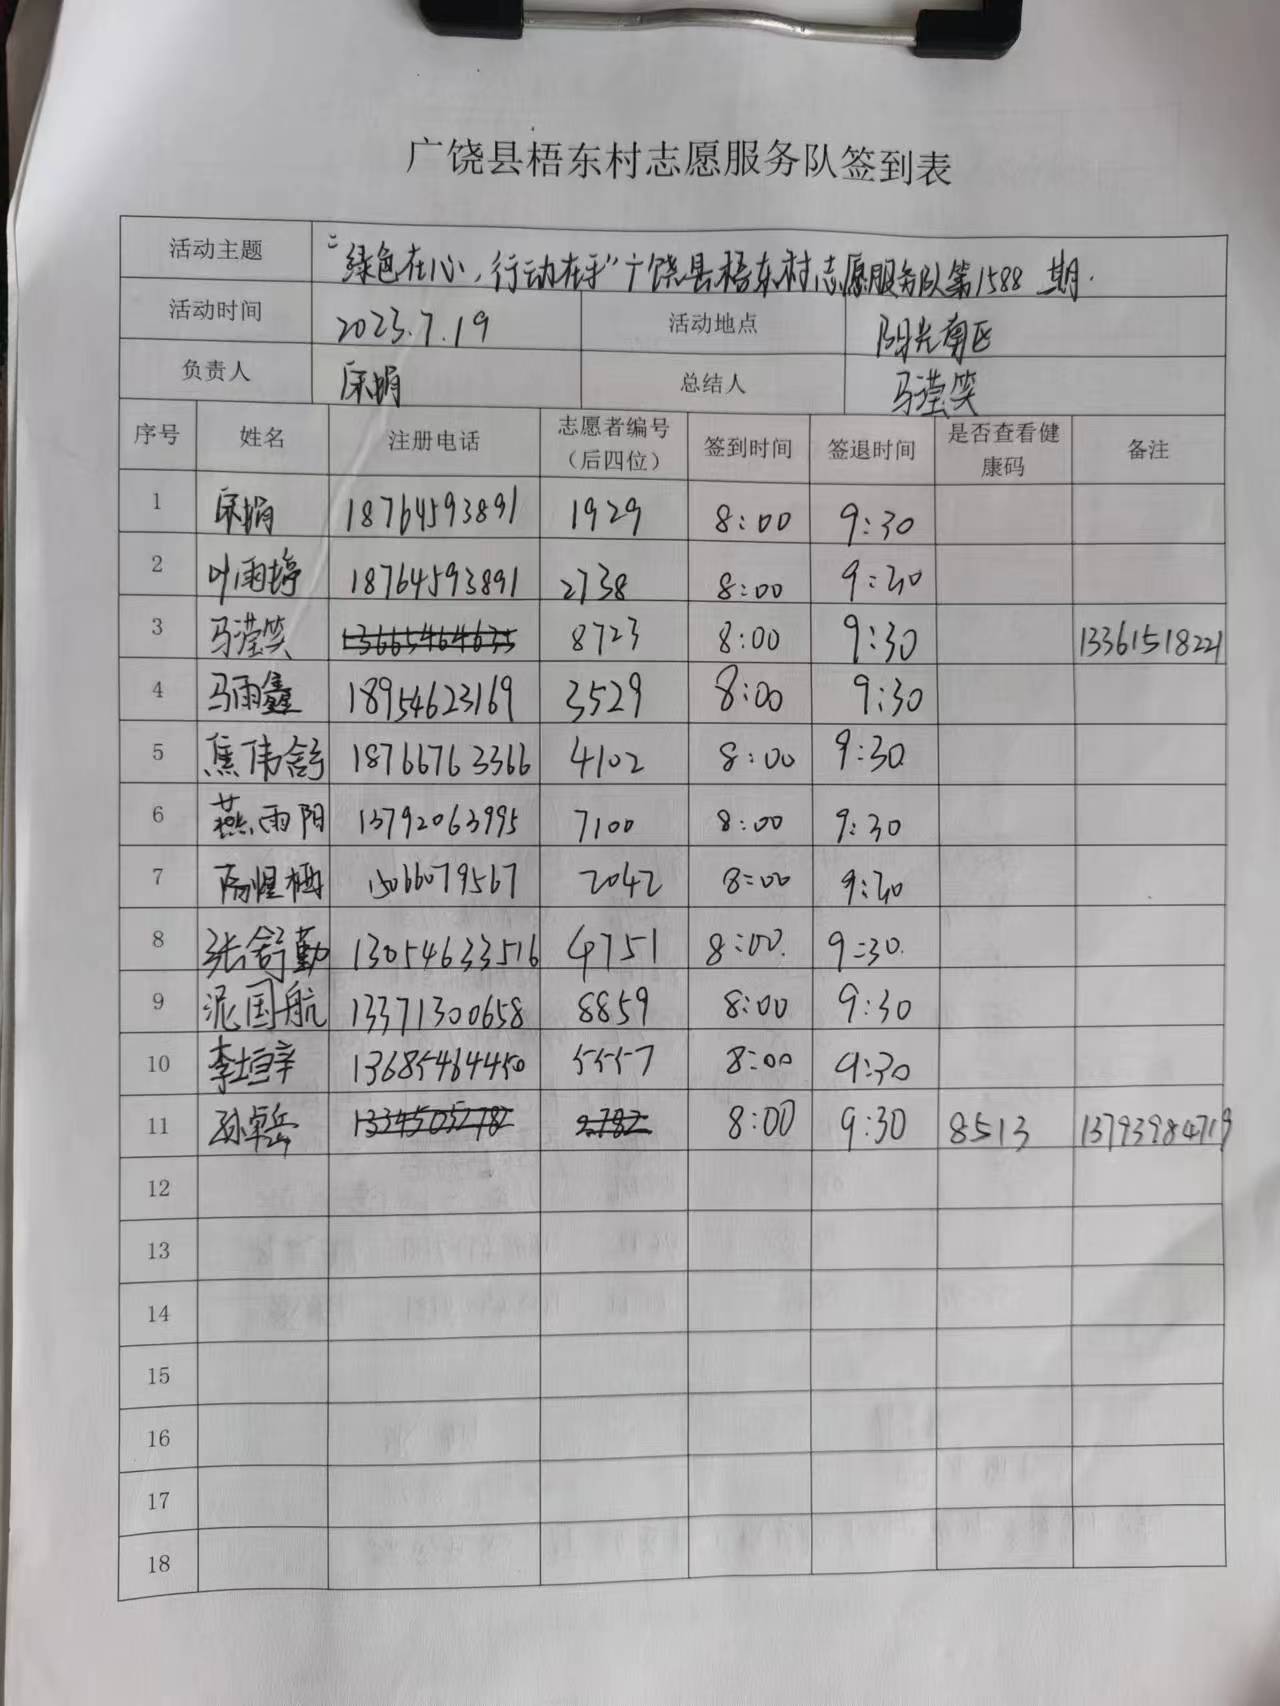 广饶县梧东村志愿服务队签到表
活动主题 "绿色在心,行动在手"广饶县梧东村志愿服务队第1588 期.
活动时间 2023.7.19 活动地点 阳光南区
负责人 总结人 马滢笑
序号 姓名 注册电话 志愿者编号（后四位） 签到时间 签退时间 是否查看健康码 备注
1 18764593891 1929 8:00 9:30
2 叶雨婷 18764593891 2738 8:00 9:30
3 马滢笑 13665464635 8723 8:00 9:30 13361518221
4 马雨鑫 18954623169 3529 8:00 9:30
5 焦伟舒 18766763366 4102 8:00 9:30
6 燕雨阳 13792063995 7100 8:00 9:30
7 15066079567 2042 8:00 9:30
8 张舒勤 13054633516 4751 8:00. 9:30.
9 泥国航 13371300658 8859 8:00 9:30
10 李垣辛 13685464450 5557 8:00 9:30
11 孙卓岳 13345052782 2782 8:00 9:30 8513 13793984719
12
13
14
15
16
17
18